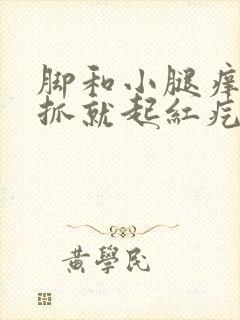 脚和小腿痒
抓就起紅疙
黃學民